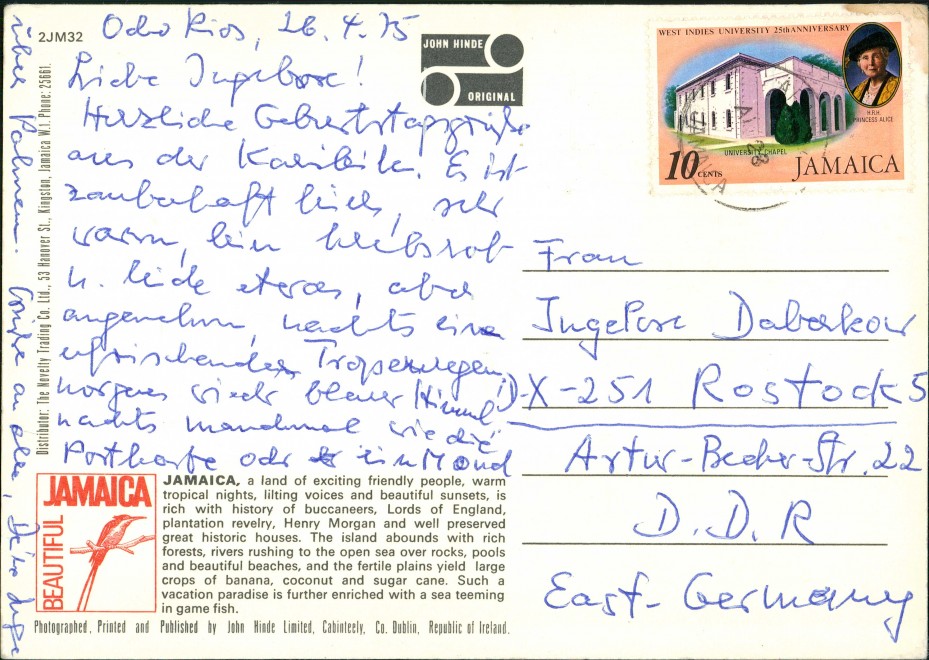 2JM32
Ocho Rios, 26.4.75
Liebe Ingeborg!
Herzliche Geburtstagsgrüße
aus der Karibik. Es ist
zauberhaft hier, sehr
warm, bin krebsrot
u. leide etwas, aber
angenehm, nachts ein
erfrischender Tropenregen,
morgens wieder blauer Himmel,
nachts manchmal wie die
Postkarte oder ein Mond
über Palmen. Grüße an alle,
JOHN HINDE
ORIGINAL
WEST INDIES UNIVERSITY 25th ANNIVERSARY
H.R.H.
PRINCESS ALICE
UNIVERSITY CHAPEL
10 CENTS
JAMAICA
Frau
Ingeborg Daberkow
D-X-251 Rostock 5
Artur-Becker-Str. 22
D.D.R
East-Germany
Distributor: The Novelty Trading Co. Ltd., 53 Hanover St., Kingston, Jamaica W.I. Phone: 25661.
JAMAICA
BEAUTIFUL
JAMAICA, a land of exciting friendly people, warm
tropical nights, lilting voices and beautiful sunsets, is
rich with history of buccaneers, Lords of England,
plantation revelry, Henry Morgan and well preserved
great historic houses. The island abounds with rich
forests, rivers rushing to the open sea over rocks, pools
and beautiful beaches, and the fertile plains yield large
crops of banana, coconut and sugar cane. Such a
vacation paradise is further enriched with a sea teeming
in game fish.
Photographed, Printed and Published by John Hinde Limited, Cabinteely, Co. Dublin, Republic of Ireland.